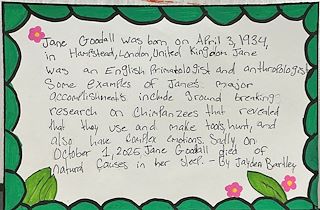 Jane Goodall was born on April 3, 1934,
in Hampstead, London, United Kingdom Jane
was an English Primatologist and anthropologist
Some examples of Janes major
accomplishments include ground breaking
research on Chimpanzees that revealed
that they use and make tools, hunt, and
also have complex emotions. Sadly on
October 1, 2025, Jane Goodall died of
natural causes in her sleep. - By Jayden Bartley